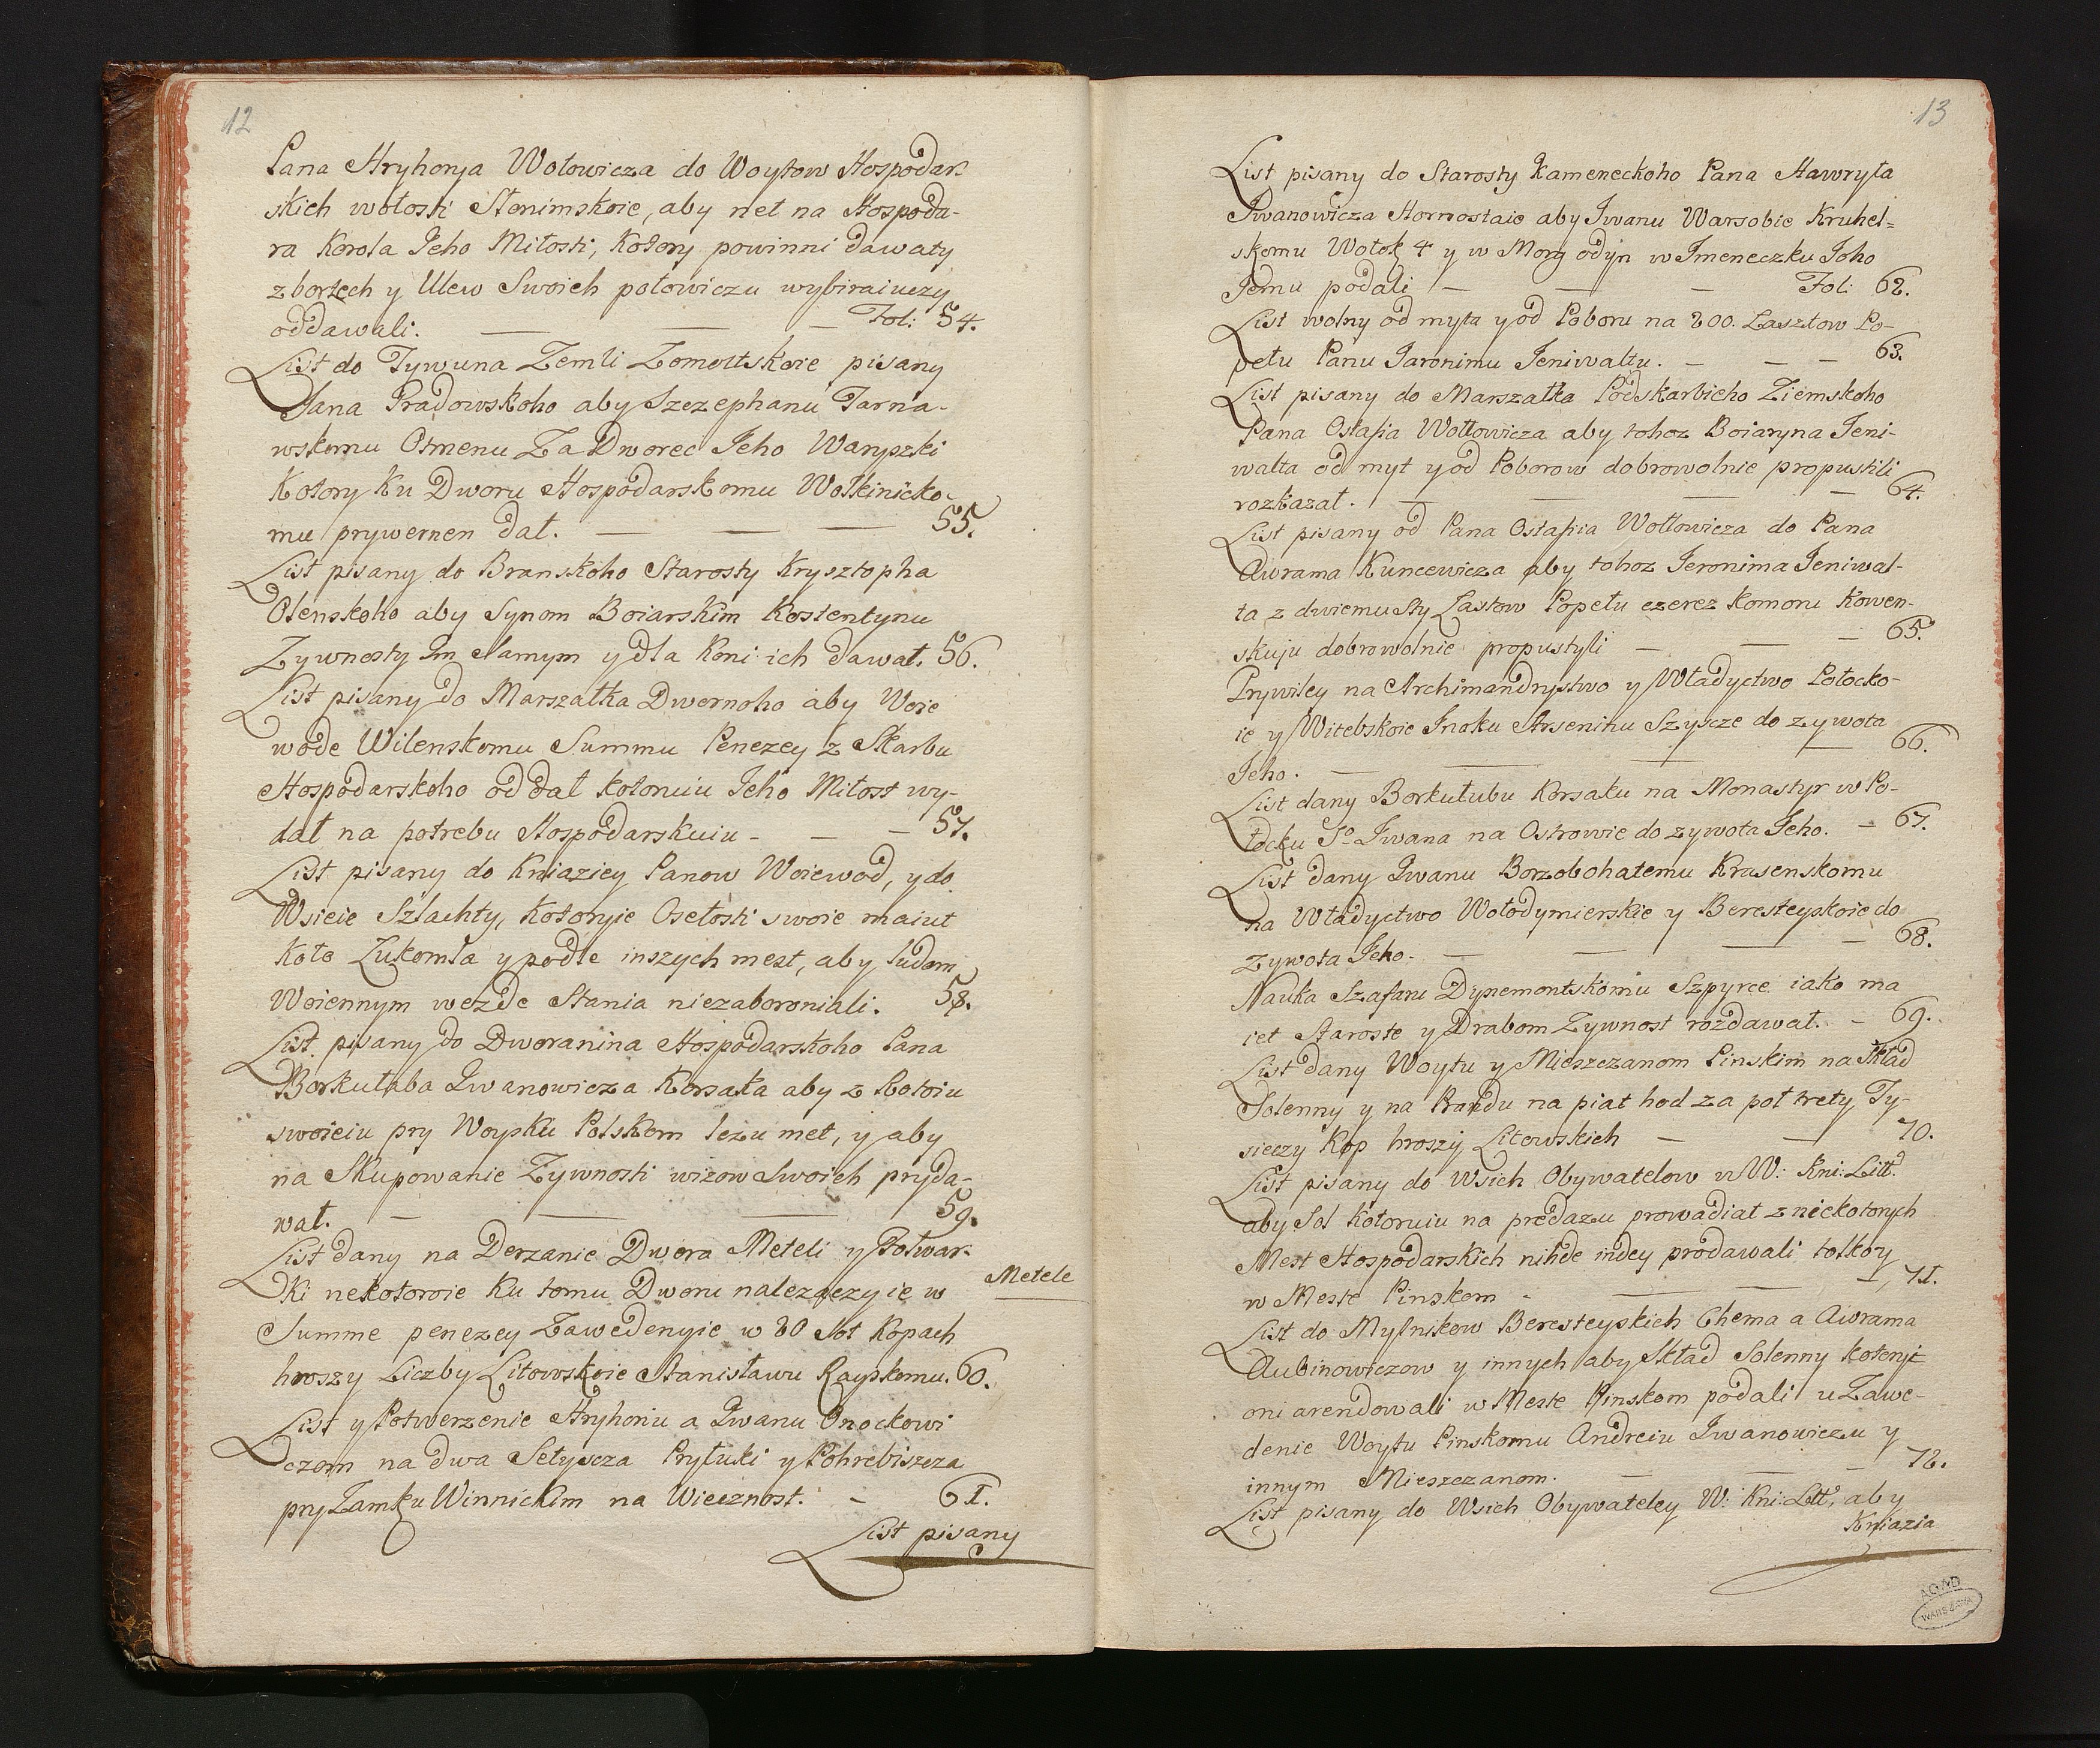 12
Pana Hryhorya Wołowicza do Woytow Hospodar-
skich wołosti Slonimskoie, aby net na Hospoda-
ra Korola Jeho Miłosti, Kotory powinni dawaty
z bortech y Ulew Swoich połowiczu wybiraiuczy
oddawali. — — — Fol: 54.
List do Tywuna Zemli Żomoitskoie pisany
Jana Pradowskoho aby Szczephanu Tarna-
wskomu Otmenu Za Dworec Jeho Warpszki
Kotory Ku Dworu Hospodarskomu Wolkinicko-
mu prywernen dal. — — — 55.
List pisany do Branskoho Starosty Krysztopha
Olenskoho aby Synom Boiarskim Kostentynu
Zywnosty Im Samym y dla Koni ich dawał. 56.
List pisany do Marszałka Dwornoho aby Woie
wode Wilenskomu Summu Penezey z Skarbu
Hospodarskoho oddał kotoruiu Jeho Miłost wy-
dał na potrebu Hospodarskuiu - — — 57.
List pisany do Kniaziey Panow Woiewod, y do
Wsieie Szlachty, Kotoryie Osełosti swoie maiut
Koło Łukomla y podle inszych mest, aby ludem
Woiennym wezde Stania niezaboroniali. 58.
List pisany do Dworanina Hospodarskoho Pana
Borkułaba Iwanowicza Korsaka aby z Rotoiu
swoieiu pry Woysku Polskom leżu meł, y aby
na Skupowanie Zywnosti wizow Swoich pryda-
wał. — — — 59.
List dany na Derzanie Dwora Meteli y Folwar-
ki nekotoroie Ku tomu Dworu nalezaczyie w
Metele
Summe penezey Zawedenyie w 20 Sot Kopach
hroszy Liczby Litowskoie Stanisławu Rayskomu. 60.
List y Potwerzenie Hryhoriu a Iwanu Onockowi
czom na dwa Selyscza Pryłuki y Pohrebiszcza
pry Zamku Winnickim na Wiecznost. — 61.
List pisany
13
List pisany do Starosty Kameneckoho Pana Hawryła
Iwanowicza Hornostaie aby Iwanu Warsobie Kruhel=
skomu Wołok 4 y w Morg odyn w Imeneczku Joho
Jemu podali — — — Fol: 62.
List wolny od myta y od Poboru na 200. Lasztow Po-
pełu Panu Jaronimu Jeniwałtu. — — — 63.
List pisany do Marszałka Podskarbieho Ziemskoho
Pana Ostafia Wołłowicza aby tohoz Boiaryna Jeni-
wałta od myt y od Poborow dobrowolnie propustili
rozkazał. — — — — 64.
List pisany od Pana Ostafiia Wołłowicza do Pana
Awrama Kuncewicza aby tohoz Jeronima Jeniwal-
ta z dwiemu Sty Łastow Popełu czerez Komoru Kowen-
skuju dobrowolnie propustyli — — — 65.
Prywiley na Archimandrystwo y Władyctwo Połocko-
ie y Witebskoie Inoku Arseninu Szyscze do zywota
Jeho. — — — — 66.
List dany Borkułubu Korsaku na Monastyr w Po-
łocku So Iwana na Ostrowie do zywota Jeho. — 67.
List dany Iwanu Borzobohatemu Krasenskomu
na Władyctwo Wołodymierskie y Beresteyskoie do
zywota Jeho. — — — — 68.
Nauka Szafaru Dynemontskomu Szpyrce iako ma
iet Staroste y Drabom Zywnost rozdawat. — 69.
List dany Woytu y Mieszczanom Pinskim na Skład
Solenny y na Prawdu na piat hod za poł trety Ty-
sieczy Kop hroszy Litowskich — — 70.
List pisany do Wsich Obywatelow w W: Kni: Litt:
aby Sol kotoruiu na predazu prowadiat z niekotorych
Mest Hospodarskich nihde indey prodawali tolkoy
w Meste Pinskom - — — 71.
List do Mytnikow Beresteyskich Chema a Awrama
Aubinowiczow y innych aby Skład Solenny kotoryi
oni arendowali w Meste Pinskom podali u Zawe-
denie Woytu Pinskomu Andreiu Iwanowiczu y
innym Mieszczanom. — — — 72.
List pisany do Wsich Obywateley W: Kni: Litt, aby
Kniazia
AGAD
WARSZAWA